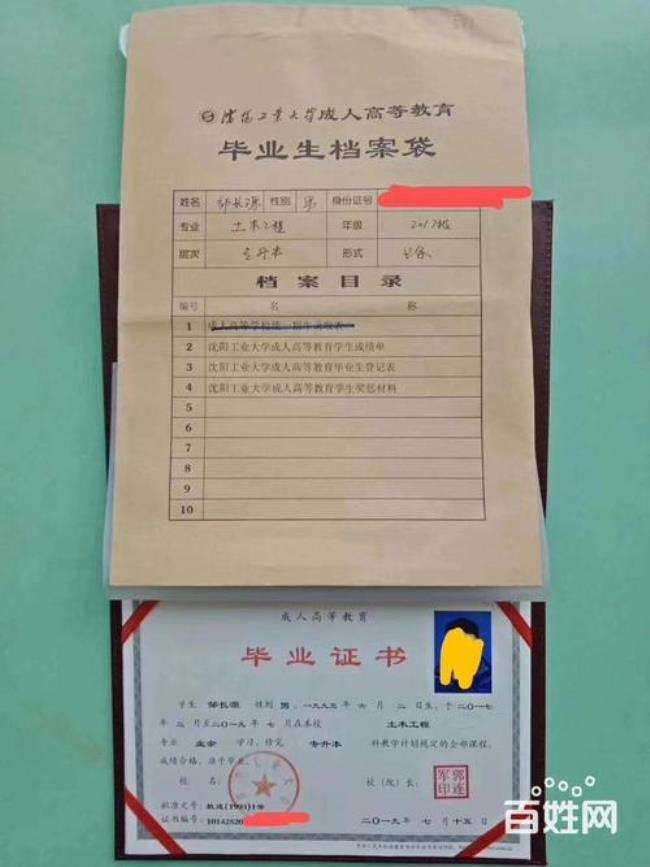 沈阳工业大学成人高等教育
毕业生档案袋
姓名 邹长源 性别 男 身份证号
专业 土木工程 年级 2017级
层次 专升本 形式 业余
档案目录
编号 名 称
1
2 沈阳工业大学成人高等教育学生成绩单
3 沈阳工业大学成人高等教育毕业生登记表
4 沈阳工业大学成人高等教育学生奖惩材料
5
6
7
8
9
10
成人高等教育
毕业证书
学生 邹长源 性别 男,一九九五年 六 月 二 日生,于二〇一七
年 三 月至二〇一九 年 七 月在本校 土木工程
专业 业余 学习,修完 专升本 科教学计划规定的全部课程,
成绩合格,准予毕业。
校 名: 校(院)长: 郭连军印
批准文号:教成(1993)1号
证书编号:10142520
二〇一九 年 七 月 十五 日
百姓网